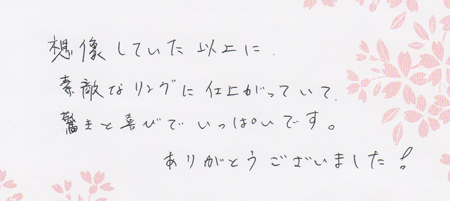 想像していた以上に、
素敵なリングに仕上がっていて、
驚きと喜びでいっぱいです。
ありがとうございました!